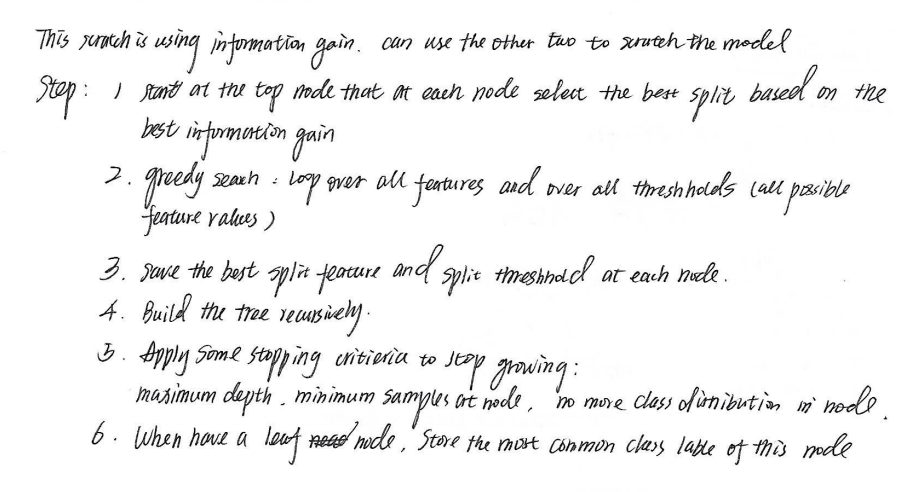 This scratch is using information gain. can use the other two to scratch the model
Step: 1 start at the top node that at each node select the best split based on the
best information gain
2. greedy search : loop over all features and over all threshholds (all possible
feature values)
3. save the best split feature and split threshhold at each node.
4. Build the tree recursively.
5. Apply some stopping critieria to stop growing:
maximum depth, minimum samples at node, no more class distribution in node.
6. When have a leaf node, Store the most common class lable of this node